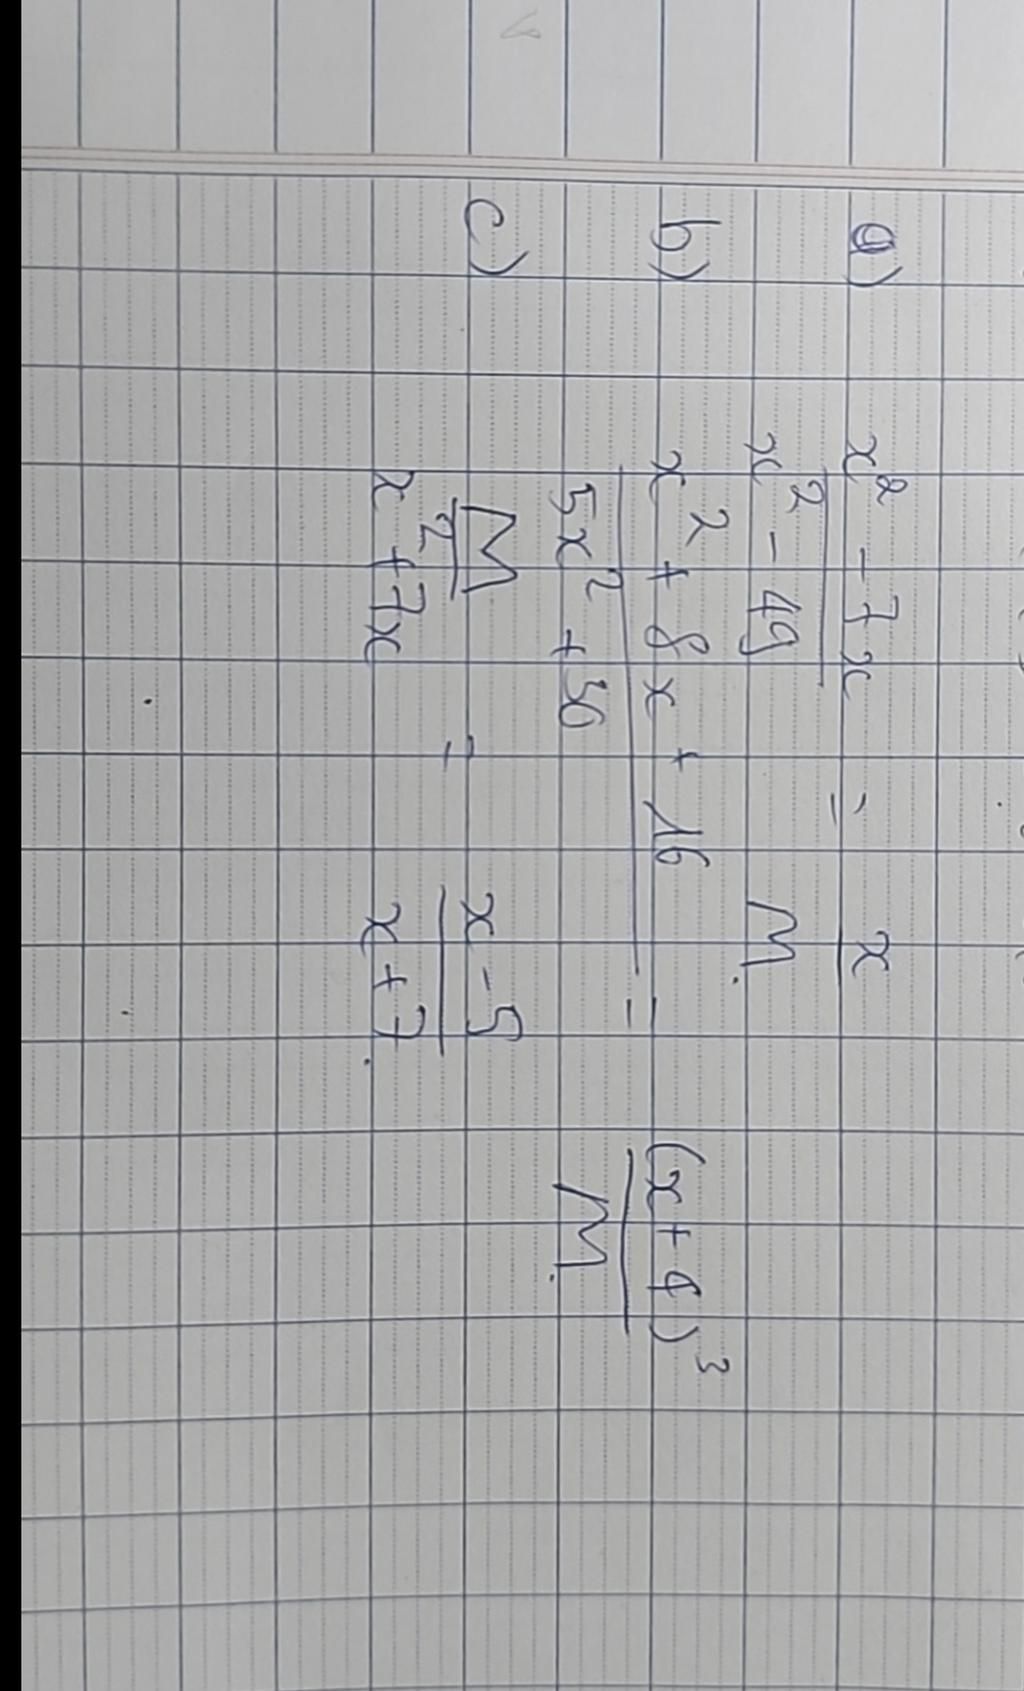 a) x² - 7x / x² - 49 = x / M.
b) x² + 8x + 16 / 5x² + 30 = (x + 4)³ / M.
c) M / x² + 7x = x - 5 / x + 7.